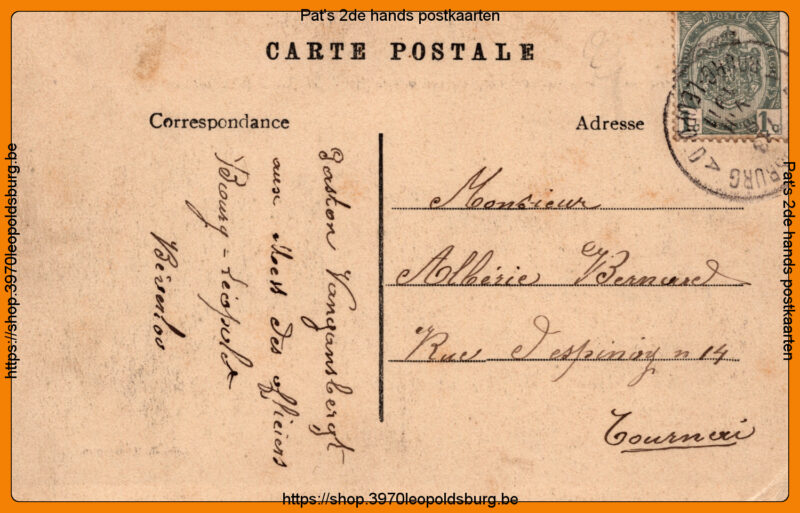 Pat's 2de hands postkaarten
CARTE POSTALE
Correspondance
Adresse
Gaston Vangansbergt
aux Mess des officiers
Bourg-Léopold
Béverloo
Monsieur
Albéric Bernard
Rue Despinoy n 14
Tournai
POSTES
1
https://shop.3970leopoldsburg.be
Pat's 2de hands postkaarten
https://shop.3970leopoldsburg.be